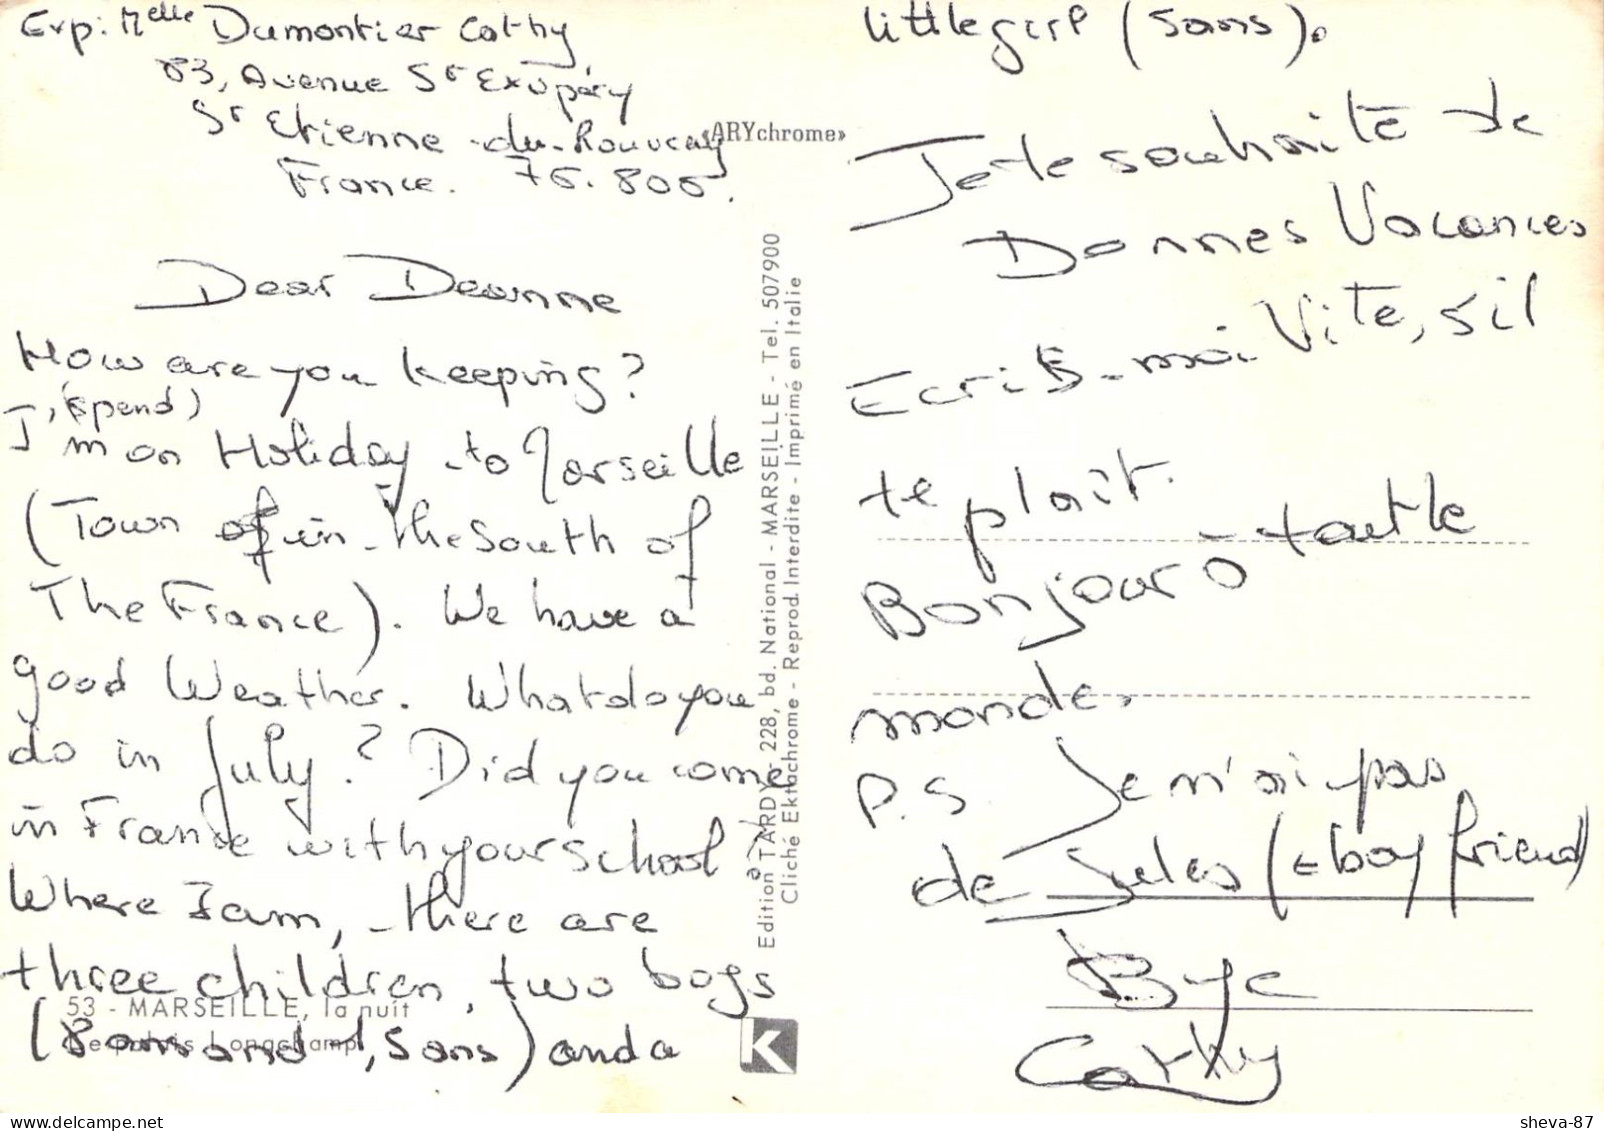 Exp: Melle Dumontier Cathy
83, Avenue St Exupéry
St Etienne-du-Rouvray
France. 76.800.
Dear Deanne
How are you keeping?
(spend)
I'm on Holiday to Marseille
(Town in the South of
The France). We have a
good Weather. What do you
do in July? Did you come
in France with your school?
Where I am, there are
three children, two boys
(and, 5 ans) and a
little girl (5 ans).
Je te souhaite de
Bonnes Vacances
Ecrit-moi Vite, s'il
te plaît.
Bonjour à tout le
monde.
P.S Je n'ai pas
de Jules (= boy friend)
Bye
Cathy
«ARYchrome»
Edition TARDY - 228, bd. National - MARSEILLE - Tel. 507900
Cliché Ektachrome - Reprod. Interdite - Imprimé en Italie
53 - MARSEILLE, la nuit
Le palais Longchamp
K
sheva-87